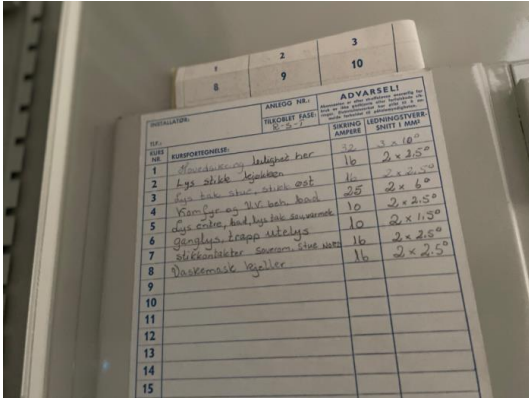 1 2 3
8 9 10
INSTALLATØR:
ANLEGG NR.:
ADVARSEL!
TLF.:
TILKOBLET FASE:
R-S-T
KURS NR. KURSFORTEGNELSE: SIKRING AMPERE LEDNINGSTVERR-SNITT I MM²
1 Hovedsikring leilighet her 32 3 x 10°
2 Lys stikk kjøkken 16 2 x 2.5°
3 Lys tak stue, stikk øst 16 2 x 2.5°
4 Komfyr og V.V. beh. bad 25 2 x 6°
5 Lys entre, bad, lys tak soverom 10 2 x 2.5°
6 ganglys, trapp utelys 10 2 x 1.5°
7 stikkontakter soverom, stue 16 2 x 2.5°
8 Vaskemask kjeller 16 2 x 2.5°
9
10
11
12
13
14
15